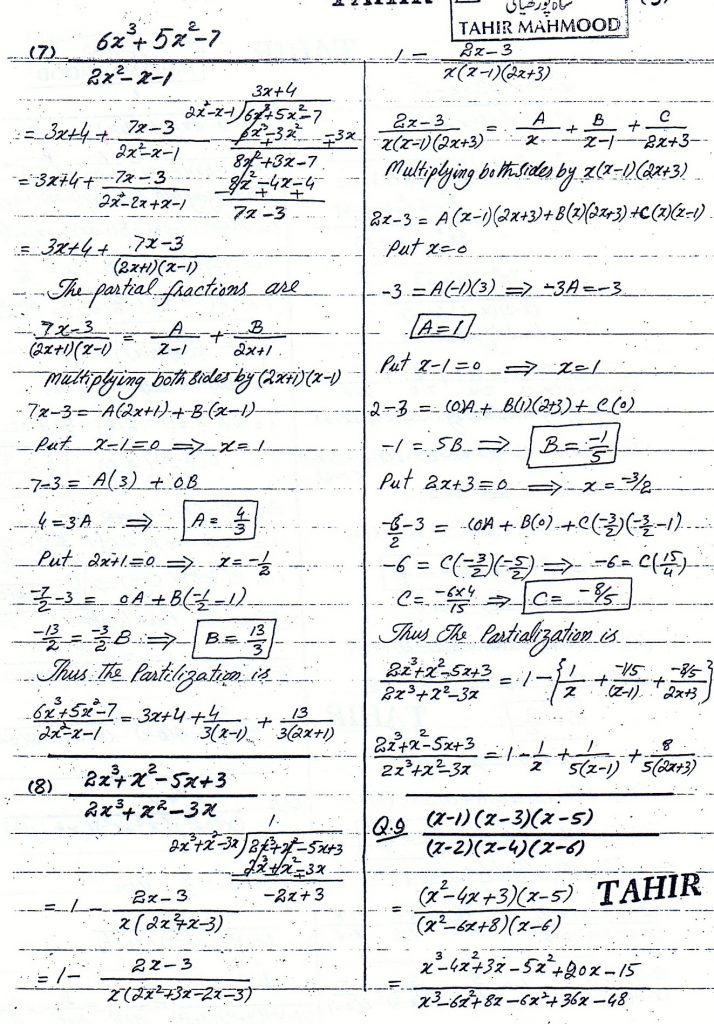 TAHIR
TAHIR MAHMOOD
(7) (6x³+5x²-7)/(2x²-x-1)
3x+4
2x²-x-1)6x³+5x²-7
6x³-3x² -3x
8x²+3x-7
8x²-4x-4
7x-3
= 3x+4 + (7x-3)/(2x²-x-1)
= 3x+4 + (7x-3)/(2x²-2x+x-1)
= 3x+4 + (7x-3)/((2x+1)(x-1))
The partial fractions are
(7x-3)/((2x+1)(x-1)) = A/(x-1) + B/(2x+1)
Multiplying both sides by (2x+1)(x-1)
7x-3 = A(2x+1) + B(x-1)
Put x-1=0 ⟹ x=1
7-3 = A(3) + 0B
4=3A ⟹ A = 4/3
Put 2x+1=0 ⟹ x=-1/2
-7/2 -3 = 0A + B(-1/2 -1)
-13/2 = -3/2 B ⟹ B = 13/3
Thus the Partilization is
(6x³+5x²-7)/(2x²-x-1) = 3x+4 + 4/(3(x-1)) + 13/(3(2x+1))
(8) (2x³+x²-5x+3)/(2x³+x²-3x)
1
2x³+x²-3x)2x³+x²-5x+3
2x³+x²-3x
-2x+3
= 1 - (2x-3)/(x(2x²+x-3))
= 1- (2x-3)/(x(2x²+3x-2x-3))
1 - (2x-3)/(x(x-1)(2x+3))
(2x-3)/(x(x-1)(2x+3)) = A/x + B/(x-1) + C/(2x+3)
Multiplying both sides by x(x-1)(2x+3)
2x-3 = A(x-1)(2x+3)+B(x)(2x+3)+C(x)(x-1)
Put x=0
-3 = A(-1)(3) ⟹ -3A=-3
A=1
Put x-1=0 ⟹ x=1
2-3 = (0)A + B(1)(2+3) + C(0)
-1 = 5B ⟹ B = -1/5
Put 2x+3=0 ⟹ x=-3/2
-6/2 -3 = (0)A + B(0) + C(-3/2)(-3/2 -1)
-6 = C(-3/2)(-5/2) ⟹ -6 = C(15/4)
C = -6x4/15 ⟹ C = -8/5
Thus The Partialization is
(2x³+x²-5x+3)/(2x³+x²-3x) = 1-{1/x + (-1/5)/(x-1) + (-8/5)/(2x+3)}
(2x³+x²-5x+3)/(2x³+x²-3x) = 1 - 1/x + 1/(5(x-1)) + 8/(5(2x+3))
Q.9 ((x-1)(x-3)(x-5))/((x-2)(x-4)(x-6))
TAHIR
= ((x²-4x+3)(x-5))/((x²-6x+8)(x-6))
= (x³-4x²+3x-5x²+20x-15)/(x³-6x²+8x-6x²+36x-48)